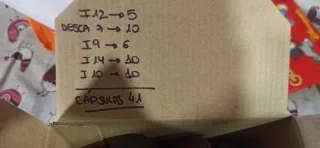 I12 → 5
DESCA 7 → 10
I9 → 6
I14 → 10
I10 → 10
CÁPSULAS 41